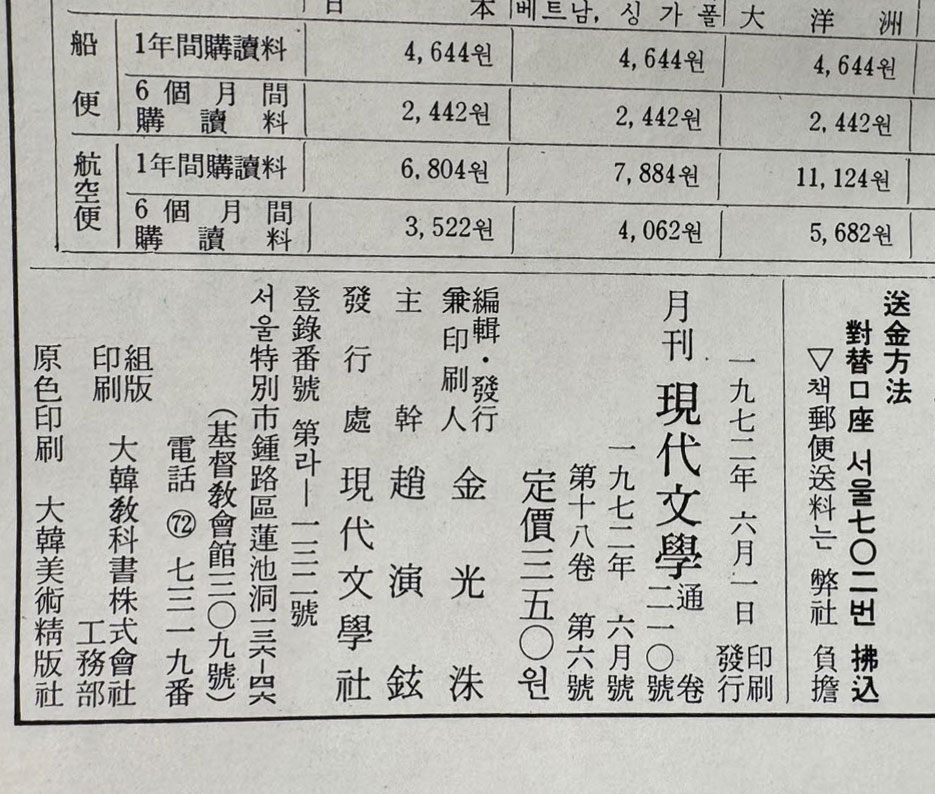 日本 베트남, 싱가폴 大洋洲
船便 1年間購讀料 4,644원 4,644원 4,644원
6個月間購讀料 2,442원 2,442원 2,442원
航空便 1年間購讀料 6,804원 7,884원 11,124원
6個月間購讀料 3,522원 4,062원 5,682원
送金方法
對替口座 서울七〇二번 拂込
▽책郵便送料는 弊社 負擔
一九七二年 六月一日 印刷 發行
月刊 現代文學 通卷 二一〇號
一九七二年 六月號
第十八卷 第六號
定價三五〇원
編輯・發行
兼印刷人 金光洙
主幹 趙演鉉
發行處 現代文學社
登錄番號 第라―一三二號
서울特別市鍾路區蓮池洞一三六―四六
(基督敎會館三〇九號)
電話 ㉒ 七三一九番
組版
印刷 大韓敎科書株式會社
工務部
原色印刷 大韓美術精版社